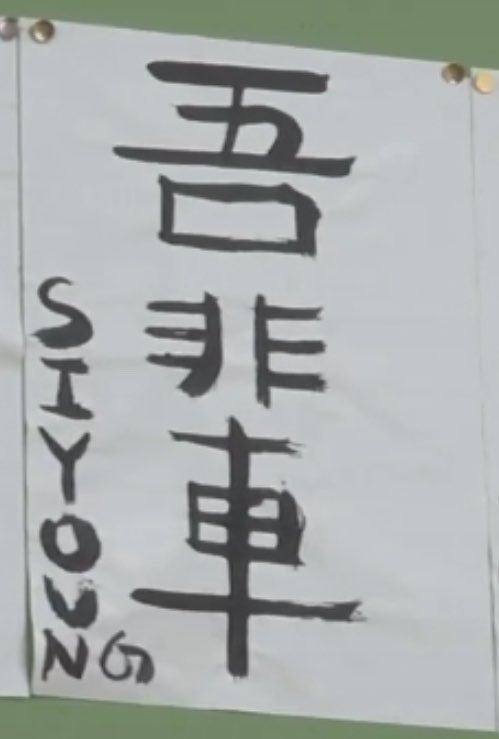 吾非車
SIYOUNG